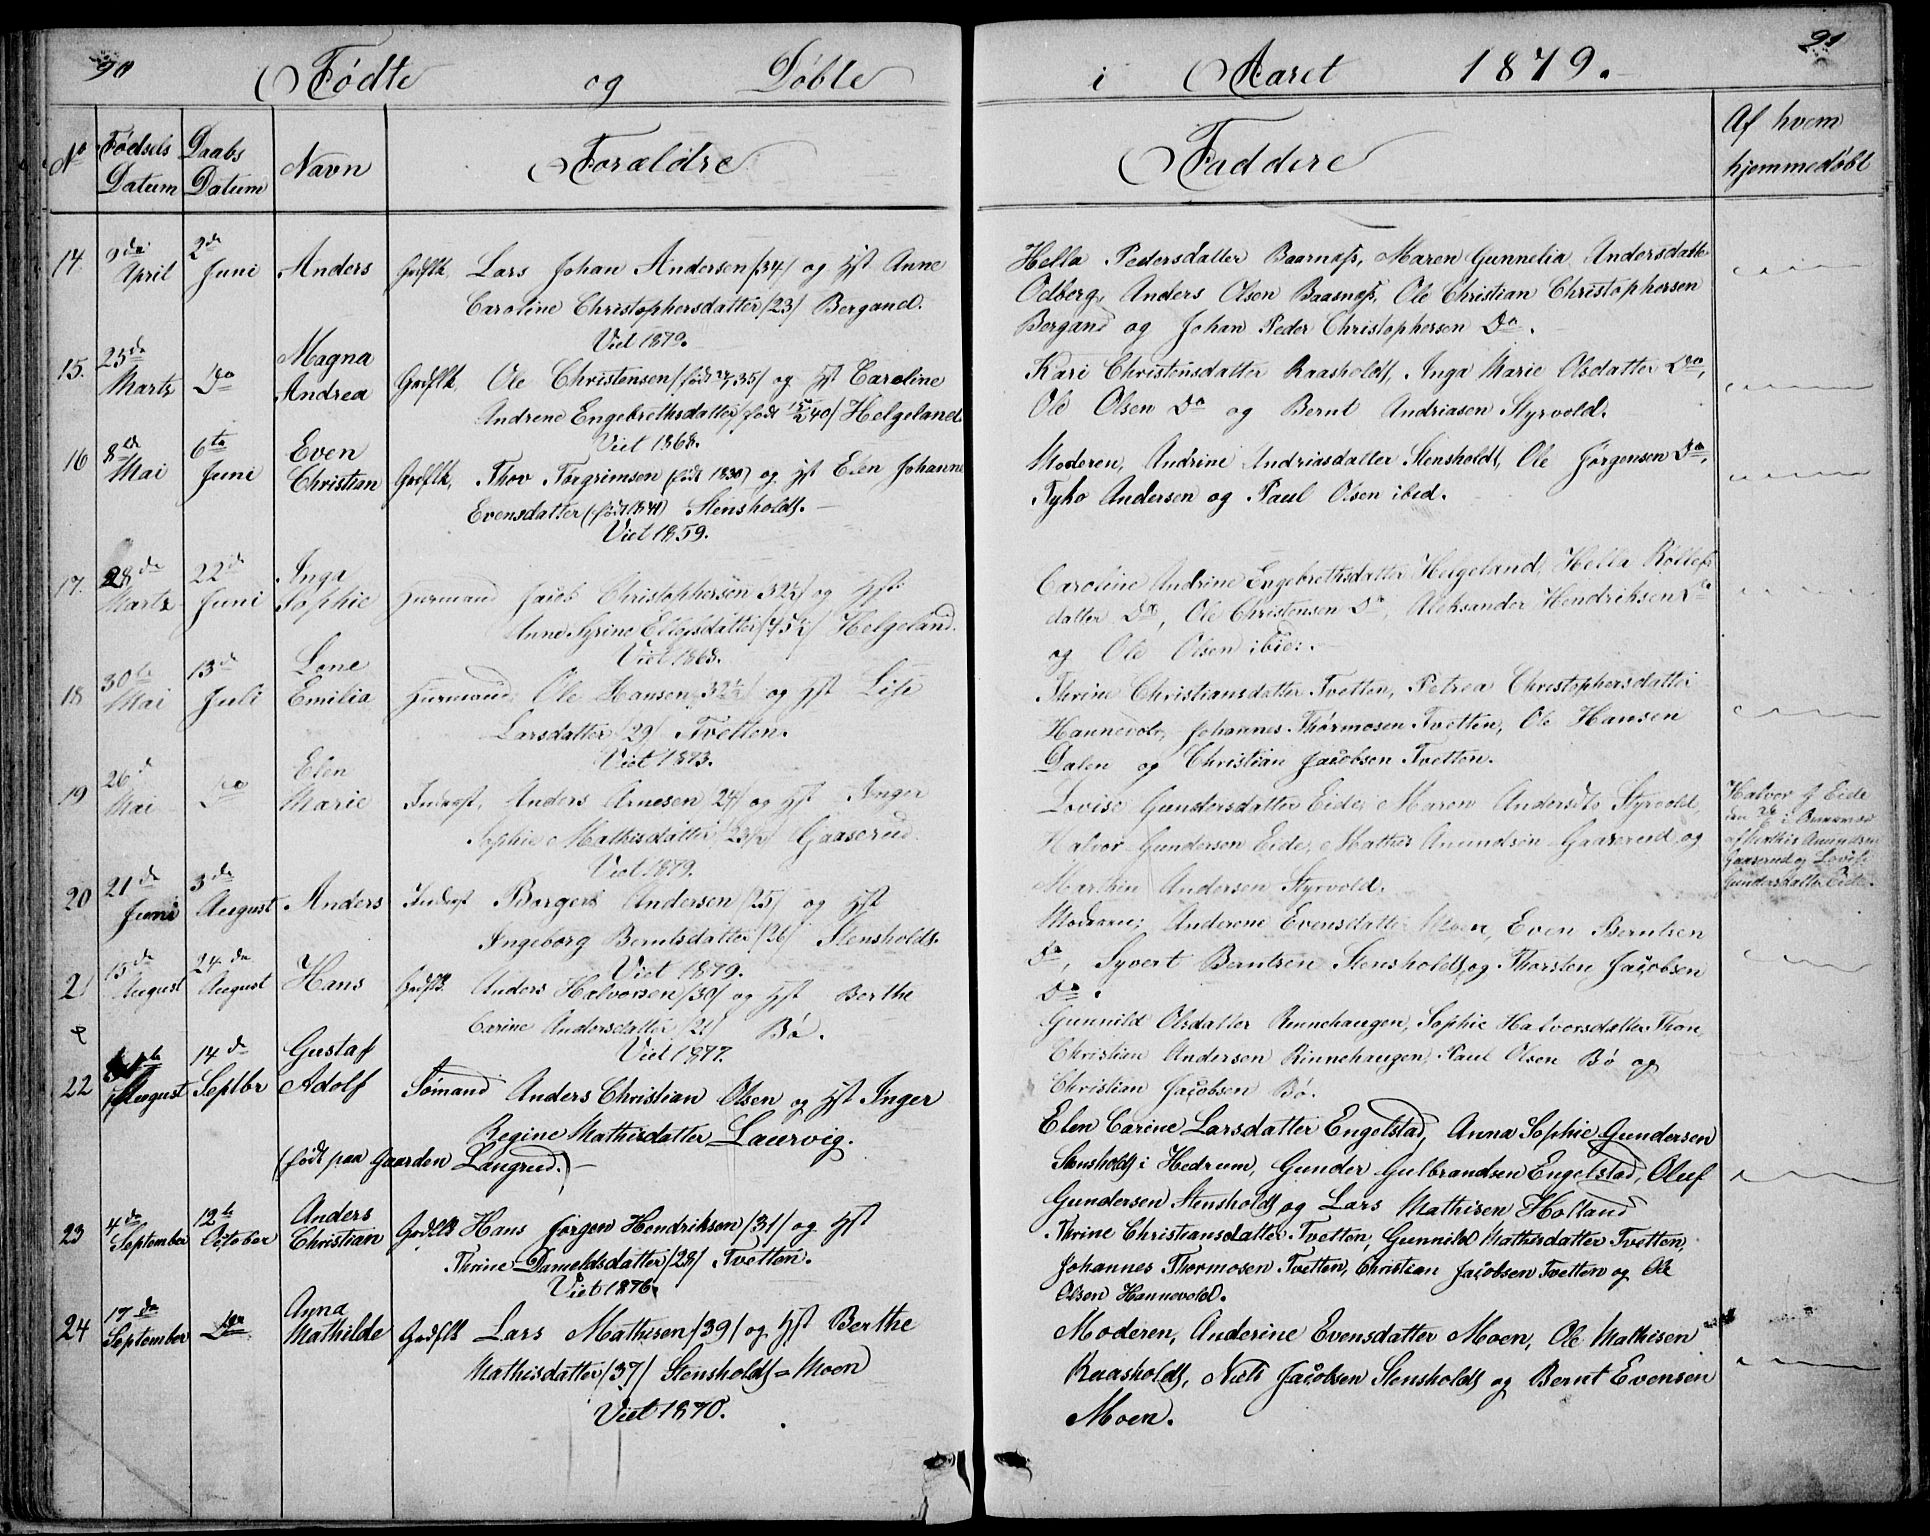 90
Fødte og Døbte
No
Fødsels Datum
Daabs Datum
Navn
Forældre
14. 9de April 2de Juni Anders Grdflk. Lars Johan Andersen /34/ og Hst Anne
Caroline Christophersdatter /23/ Bergand.
Viet 1879.
15. 25de Martz Do Magna Andrea Grdflk. Ole Christensen /født 35/ og Hst Caroline
Andrene Engebrethsdatter /født 40/ Helgeland.
Viet 1868.
16 8de Mai 6te Juni Even Christian Grdflk. Thov Torgrimsen (født 1830) og Hst Elen Johanne
Evensdatter (født 1841) Stensholdt.
Viet 1859.
17. 28de Martz 22de Juni Inga Sophie Huusmand Jacob Christophersen og Hst
Anne Helgeland.
Viet 1868.
18 30te Mai 13de Juli Lone Emilia Huusmand Ole Hansen 32½/ og Hst Lise
Larsdatter /29/ Tvetten.
Viet 1873.
19 26d Mai Do Elen Marie Inderst, Anders Arnesen 24/ og Hst Inger
Sophie Mathisdatter Gaaserud.
Viet 1879.
20 21de Juni 3de August Anders Inderst Borger Andersen /25/ og Hst
Ingeborg Berntsdatter /26/ Stensholdt.
Viet 1879.
21 15de August 24de August Hans Grdflk. Anders Halvorsen /30/ og Hst Berthe
Carine Andersdatter /21/ Bø.
Viet 1877.
22 August 14de Septbr Gustaf Adolf Sømand Anders Christian Olsen og Hst Inger
Regine Mathisdatter Laurvig.
(født paa Gaarden Langrud.)
23 4de September 12te October Anders Christian Grdflk Hans Jørgen Hendriksen /31/ og Hst
Thrine Danieldsdatter /28/ Tvetten.
Viet 1876.
24 17de September Do Anna Mathilde Grdflk Lars Mathisen /39/ og Hst Berthe
Mathisdatter /37/ Stensholdt = Moen
Viet 1870.
91
i Aaret 1879.
Faddere
Af hvem hjemmedøbt
Hella Pedersdatter Baarnæs, Maren Gunnelia Andersdatter
Odberg, Anders Olsen Baasnæs, Ole Christian Christophersen
Bergand og Johan Peder Christophersen Do.
Kari Christensdatter Raasholdt, Inga Marie Olsdatter Do,
Ole Olsen Do og Bernt Andriasen Styrvold.
Moderen, Andrine Andriasdatter Stensholdt, Ole Jørgensen Do,
Tyko Andersen og Paul Olsen ibid.
Caroline Andrine Engebrethsdatter Helgeland, Hella Rollefs
datter Do, Ole Christensen Do, Aleksander Hendriksen Do
og Ole Olsen ibid.
Thrine Christiansdatter Tvetten, Petrea Christophersdatter
Hannevold, Johannes Thormosen Tvetten, Ole Hansen
Dalen og Christian Jacobsen Tvetten.
Lovise Gundersdatter Eide, Maren Andersdtr Styrvold,
Halvor Gundersen Eide, Mathis Anundsen Gaaserud og
Marthin Andersen Styrvold.
Halvor G Eide
Gaaserud og Lovise
Gundersdatter Eide.
Moderen, Anderene Evensdatter Moen, Even Berntsen
Do, Syvert Berntsen Stensholdt og Thorsten Jacobsen
Do.
Gunnild Olsdatter Rinnehaugen, Sophie Halvorsdatter Thon,
Christian Andersen Rinnehaugen, Paul Olsen Bø og
Christian Jacobsen Bø.
Elen Carine Larsdatter Engelstad, Anna Sophie Gundersen
Stensholdt i Hedrum, Gunder Gulbrandsen Engelstad, Oluf
Gundersen Stensholdt og Lars Mathisen Holland
Thrine Christiansdatter Tvetten, Gunnild Mathisdatter Tvetten,
Johannes Thormosen Tvetten, Christian Jacobsen Tvetten og Ole
Olsen Hannevold.
Moderen, Anderine Evensdatter Moen, Ole Mathisen
Raasholdt, Niels Jacobsen Stensholdt og Bernt Evensen
Moen.